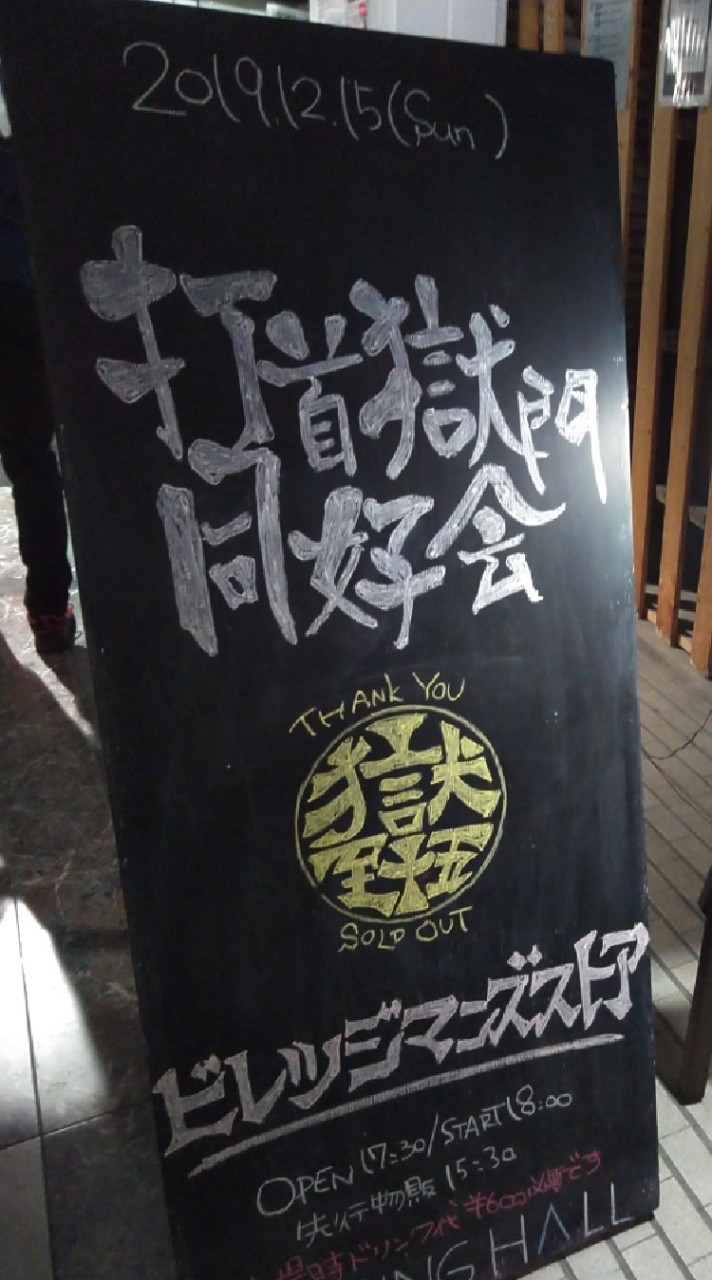 2019.12.15(Sun)
打首獄門
同好会
THANK YOU
獄
至十五
SOLD OUT
ビレッジマンズストア
OPEN 17:30/START 18:00
先行物販 15:30
場時ドリンク代 ¥600必要です
NG HALL